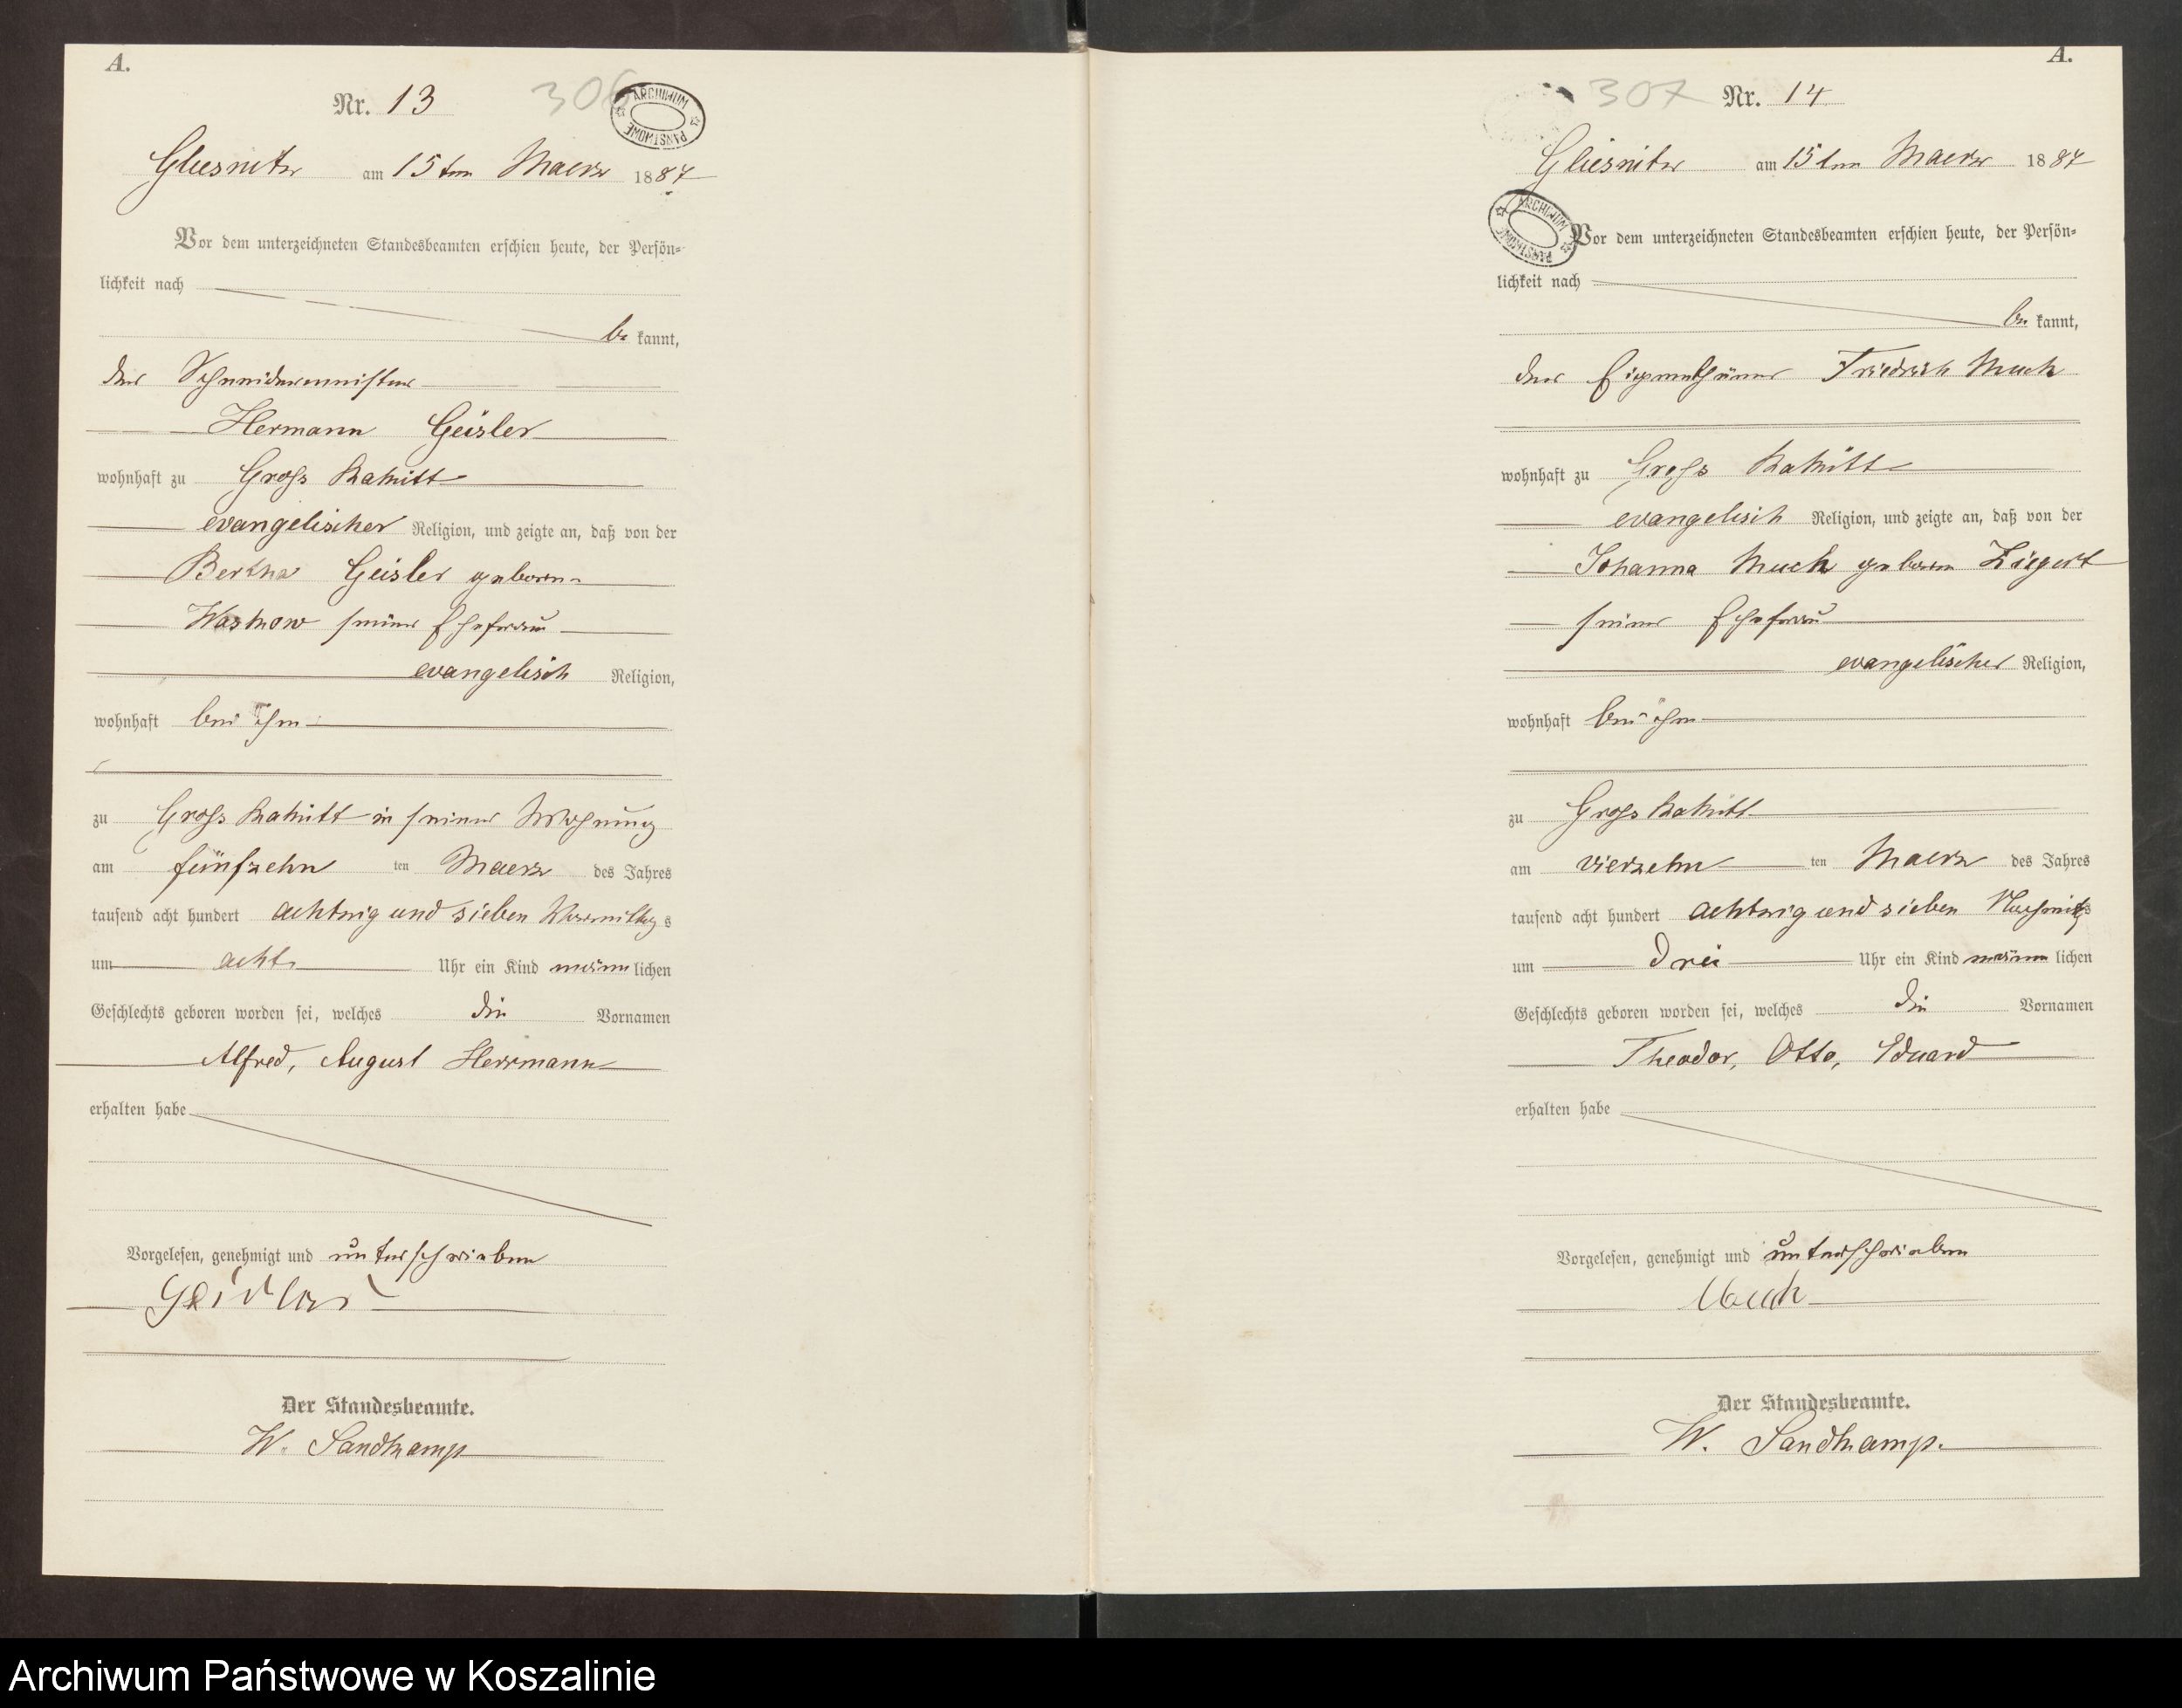 A.
Nr. 13
306
ARCHIWUM PAŃSTWOWE
Gliesnitz am 15ten Maerz 1887
Vor dem unterzeichneten Standesbeamten erschien heute, der Persön-
lichkeit nach
be kannt,
der Schneidermeister
Hermann Geisler
wohnhaft zu Gross Rakitt
evangelischer Religion, und zeigte an, daß von der
Bertha Geisler geboren
seiner Ehefrau
evangelisch Religion,
wohnhaft bei ihm
zu Gross Rakitt in seiner Wohnung
am fünfzehn ten Maerz des Jahres
tausend acht hundert achtzig und sieben Vormittags
um acht Uhr ein Kind männlichen
Geschlechts geboren worden sei, welches die Vornamen
Alfred, August Herrmann
erhalten habe
Vorgelesen, genehmigt und unterschrieben
Geisler
Der Standesbeamte.
W. Sandkamp
A.
307
Nr. 14
Gliesnitz am 15ten Maerz 1887
ARCHIWUM PAŃSTWOWE
Vor dem unterzeichneten Standesbeamten erschien heute, der Persön-
lichkeit nach
be kannt,
der Eigenthümer Friedrich Much
wohnhaft zu Gross Rakitt
evangelisch Religion, und zeigte an, daß von der
Johanna Much geboren Ziegert
seiner Ehefrau
evangelischer Religion,
wohnhaft bei ihm
zu Gross Rakitt
am vierzehn ten Maerz des Jahres
tausend acht hundert achtzig und sieben Nachmittags
um drei Uhr ein Kind männlichen
Geschlechts geboren worden sei, welches die Vornamen
Theodor, Otto, Eduard
erhalten habe
Vorgelesen, genehmigt und unterschrieben
Much
Der Standesbeamte.
W. Sandkamp.
Archiwum Państwowe w Koszalinie